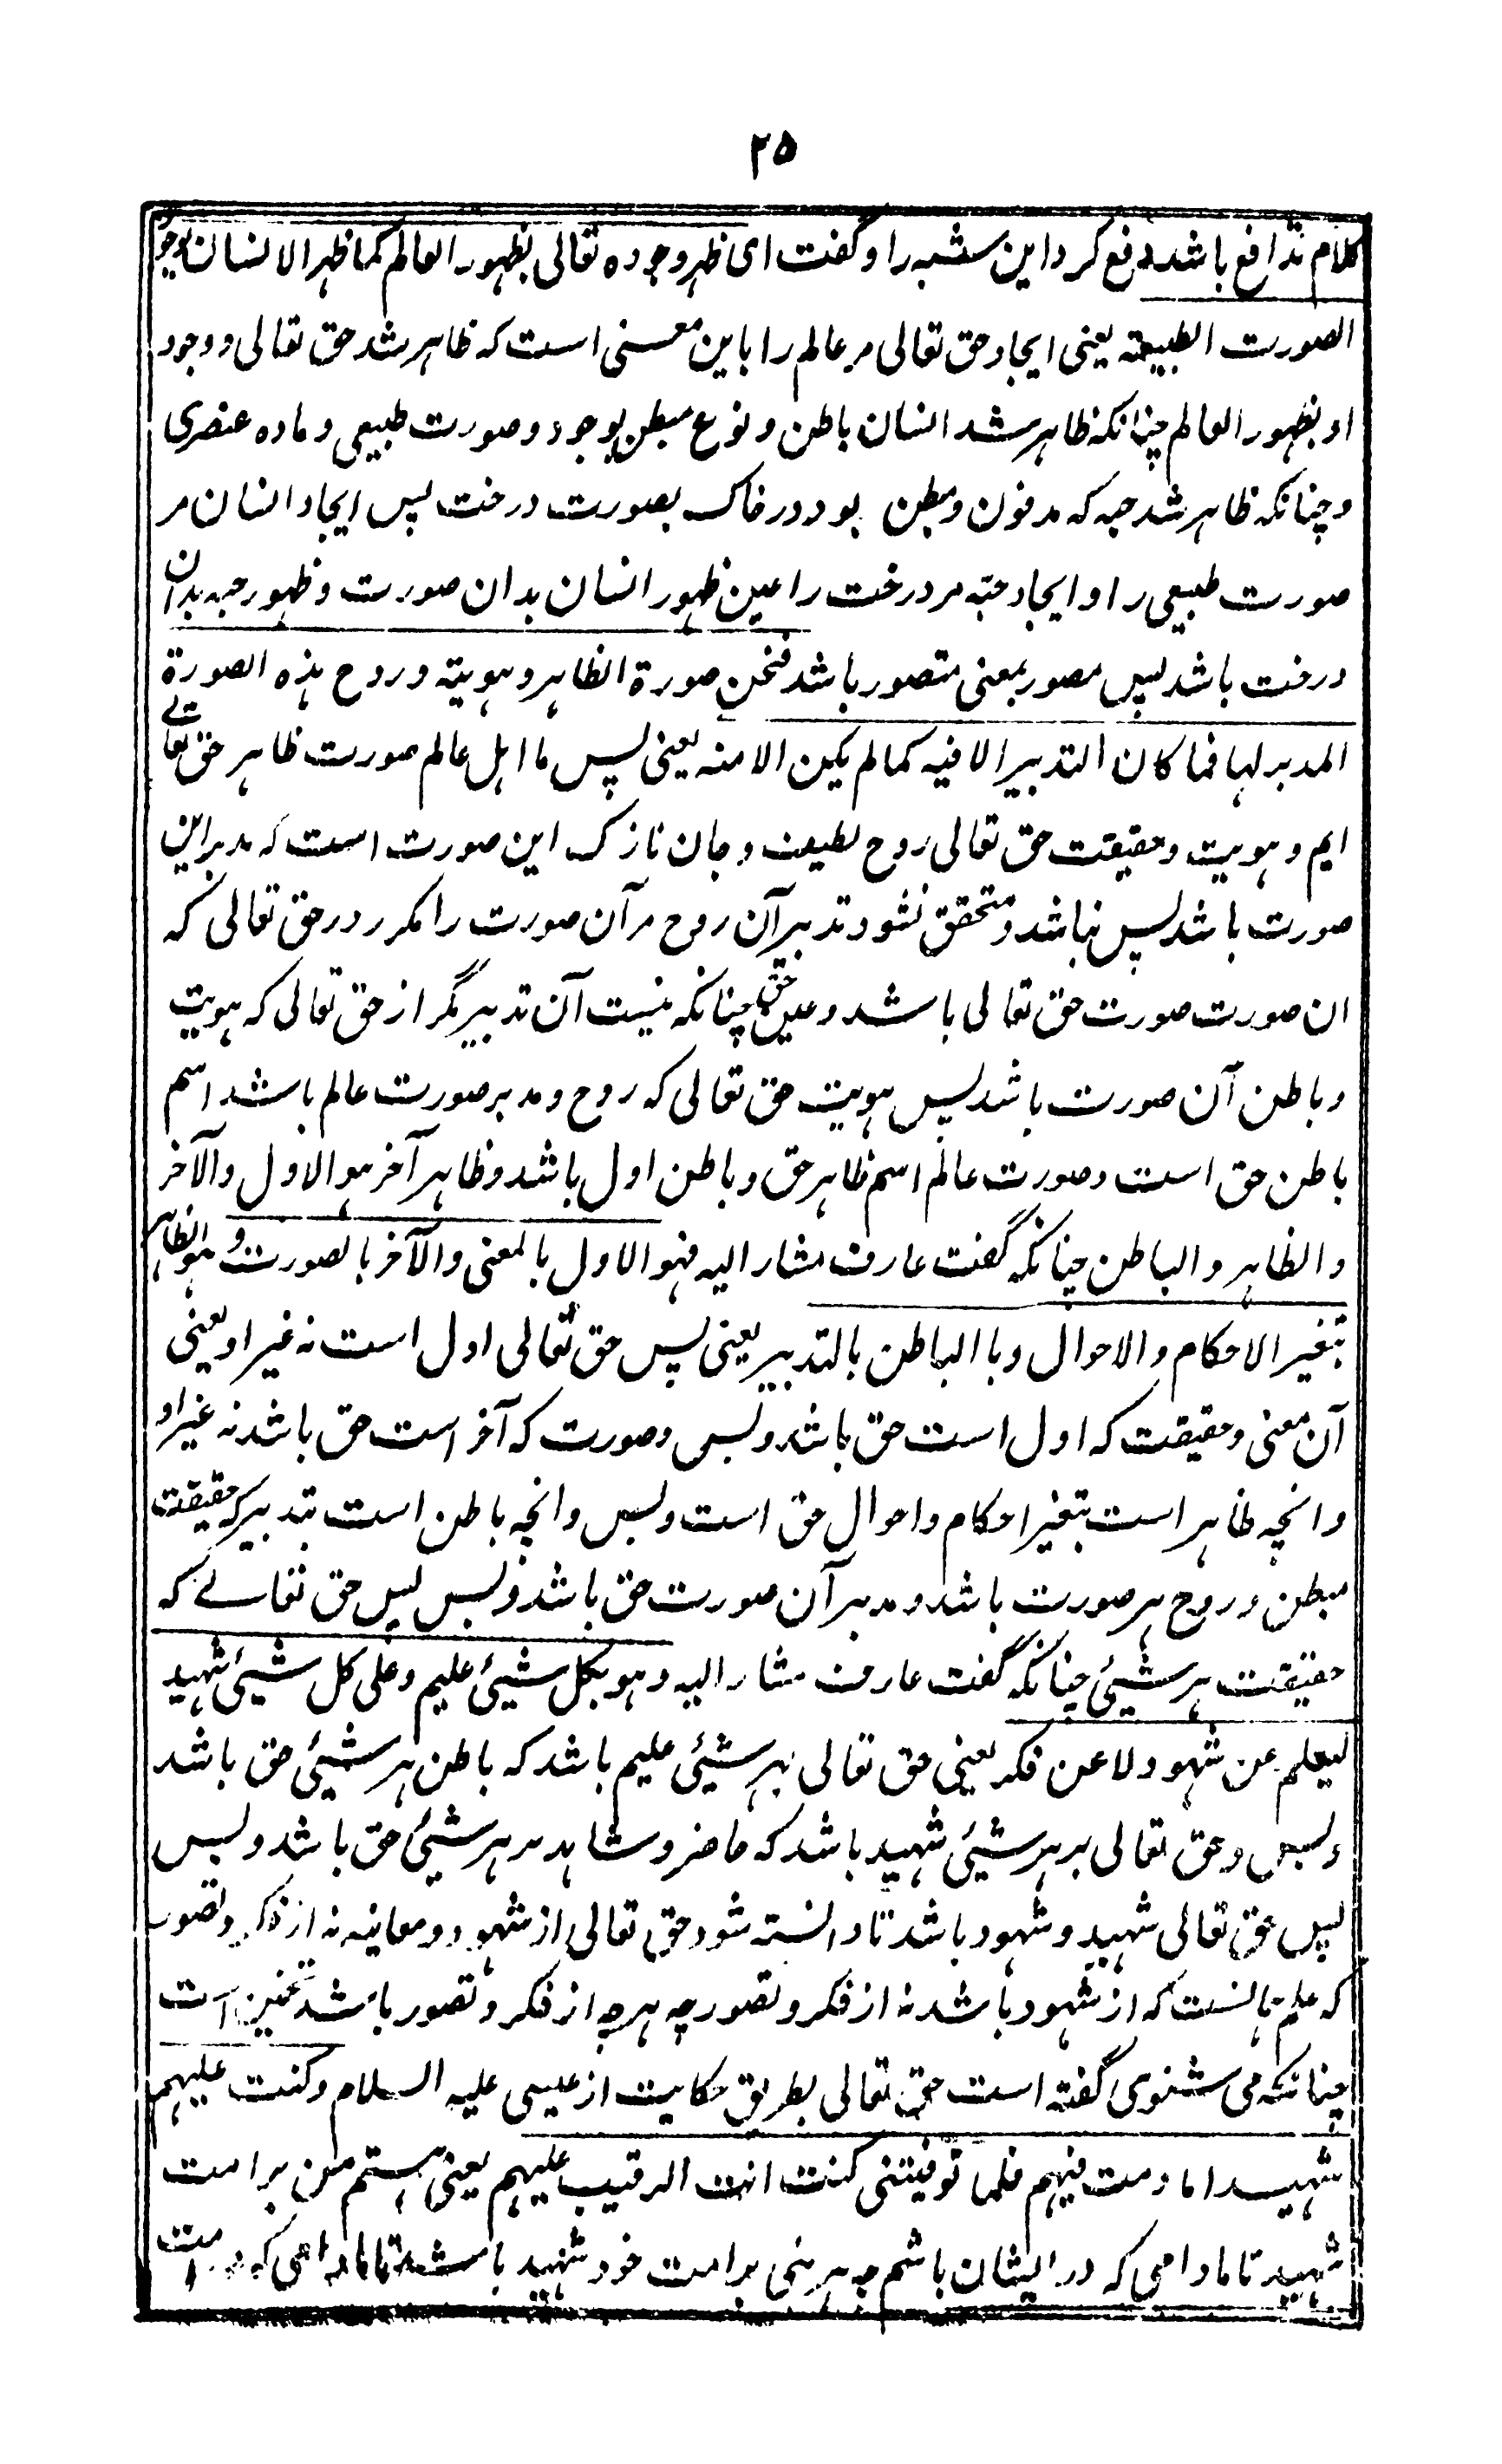 ۲۵
کلام تدافع باشد دفع کرد این شبه را و گفت ای ظهر وجوده تعالی بظهور العالم کما ظهر الانسان بوجود
الصورت الطبیعة یعنی ایجاد حق تعالی مر عالم را باین معنی است که ظاهر شد حق تعالی و وجود
او بظهور العالم چنانکه ظاهر شد انسان باطن و نوع مبطن بوجود و صورت طبیعی و ماده عنصری
و چنانکه ظاهر شد حبه که مدفون و مبطن بود در خاک بصورت درخت پس ایجاد انسان مر
صورت طبیعی را و ایجاد حبّه مر درخت را عین ظهور انسان بدان صورت و ظهور حبه بدان
درخت باشد پس مصور بمعنی متصور باشد فنحن صورة الظاهر و هویته و روح هذه الصورة
المدبر لها فما کان التدبیر الا فیه کما لم یکن الا منه یعنی پس ما اهل عالم صورت ظاهر حق تعالے
ایم و هویت و حقیقت حق تعالی روح لطیف و جان نازک این صورت است که مدبر این
صورت باشد پس نباشد و متحقق نشود تدبیر آن روح مر آن صورت را مگر در حق تعالی که
ان صورت صورت حق تعالی باشد و عین حق چنانکه نیست آن تدبیر مگر از حق تعالی که هویت
و باطن آن صورت باشد پس هویت حق تعالی که روح و مدبر صورت عالم باشد اسم
باطن حق است و صورت عالم اسم ظاهر حق و باطن اول باشد و ظاهر آخر هو الاول والآخر
والظاهر والباطن چنانکه گفت عارف مشار الیه فهو الاول بالمعنی والآخر بالصورت و هو الظاهر
بتغیر الاحکام والاحوال و با الباطن بالتدبیر یعنی پس حق تعالی اول است نه غیر او یعنی
آن معنی و حقیقت که اول است حق باشد و بس و صورت که آخر است حق باشد نه غیر او
و انچه ظاهر است بتغیر احکام و احوال حق است و بس و انچه باطن است بتدبیر که حقیقت
مبطن و روح هر صورت باشد و مدبر آن صورت حق باشد و بس پس حق تعالے که
حقیقت هر شیئی چنانکه گفت عارف مشار الیه وهو بکل شیئی علیم و علی کل شیئی شهید
لیعلم عن شهود ولا عن فکر یعنی حق تعالی بهر شیئی علیم باشد که باطن هر شیئی حق باشد
و بس و حق تعالی بر هر شیئی شهید باشد که حاضر و شاهد مر هر شیئی حق باشد و بس
پس حق تعالی شهید و شهود باشد تا دانسته شود حق تعالی از شهود و معاینه نه از فکر و تصور
که علم بالنست که از شهود باشد نه از فکر و تصور چه هرچه از فکر و تصور باشد تخمین است
چنانکه می شنوی گفته است حق تعالی بطریق حکایت از عیسی علیه السلام و کنت علیهم
شهیدا ما دمت فیهم فلما توفیتنی کنت انت الرقیب علیهم یعنی هستم من بر امت
شهید تا مادامی که در ایشان باشم چه هر نبی بر امت خود شهید باشد تا مادامی که در امت